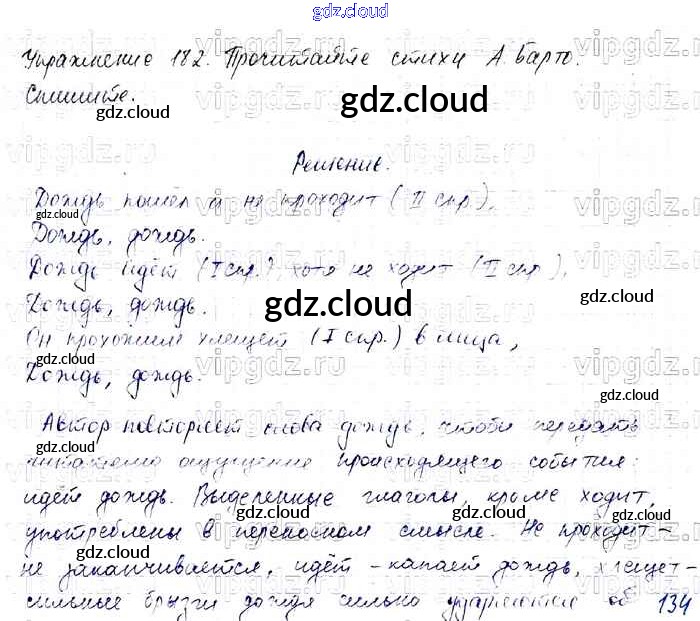 gdz.cloud
Упражнение 182. Прочитайте стихи А. Барто.
Спишите.
gdz.cloud
Решение.
Дождь пошёл и не проходит (II спр.),
gdz.cloud
Дождь, дождь.
Дождь идёт (I спр.), хотя не ходит (II спр.),
gdz.cloud
Дождь, дождь.
gdz.cloud
Он прохожим хлещет (I спр.) в лица,
gdz.cloud
Дождь, дождь.
gdz.cloud
Автор повторяет слова дождь, чтобы передать
gdz.cloud
читателю ощущение происходящего события:
gdz.cloud
идёт дождь. Выделенные глаголы, кроме ходит,
gdz.cloud
употреблены в переносном смысле. Не проходит-
gdz.cloud
не заканчивается, идёт - капает дождь, хлещет-
gdz.cloud
сильные брызги дождя сильно ударяются об 134
vipgdz.ru